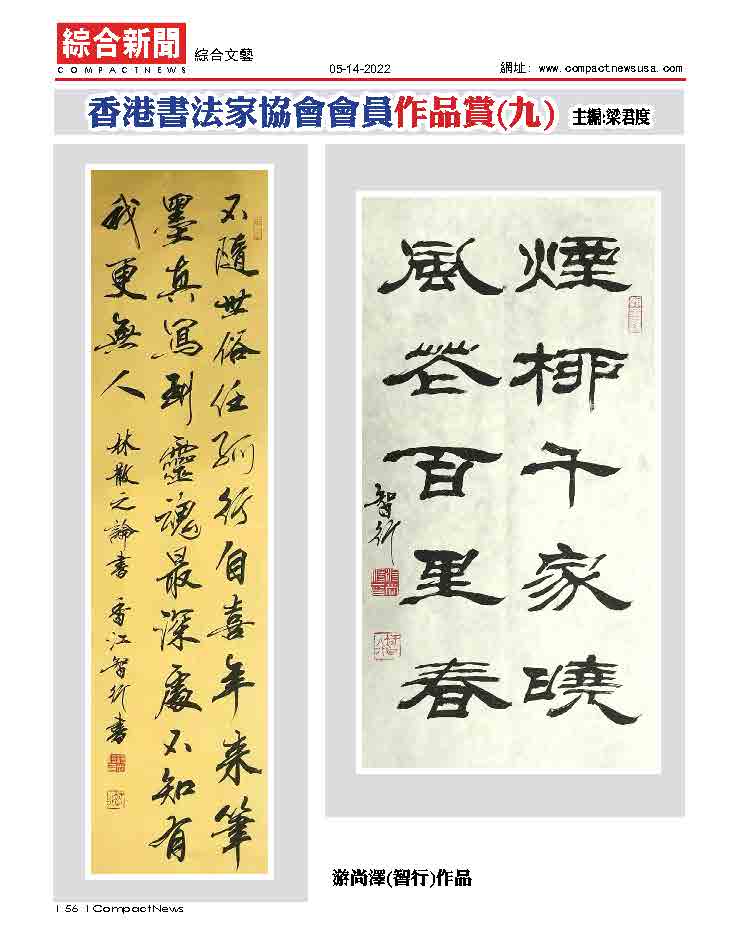 綜合新聞
COMPACTNEWS
綜合文藝
05-14-2022
網址: www.compactnewsusa.com
香港書法家協會會員作品賞(九)
主編:梁君度
不隨世俗任孤行自喜年來筆
墨真寫到靈魂最深處不知有
我更無人
林散之論書 香江智行書
煙柳千家曉
風花百里春
智行
游尚澤(智行)作品
| 56 | CompactNews